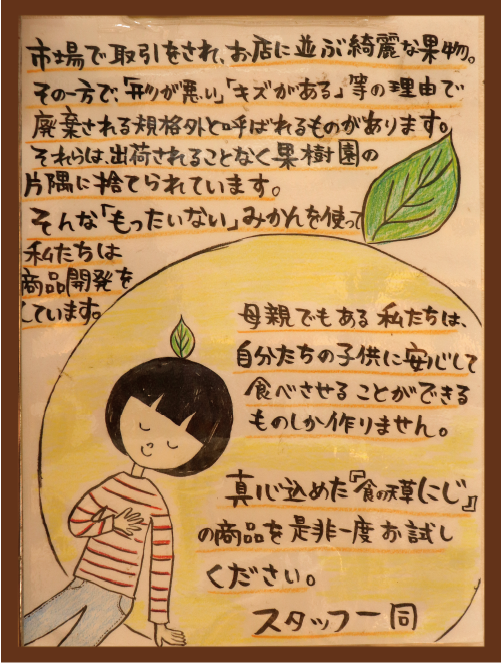 市場で取引をされ、お店に並ぶ綺麗な果物。
その一方で、「形が悪い」「キズがある」等の理由で
廃棄される規格外と呼ばれるものがあります。
それらは、出荷されることなく果樹園の
片隅に捨てられています。
そんな「もったいない」みかんを使って
私たちは
商品開発を
しています。
母親でもある私たちは、
自分たちの子供に安心して
食べさせることができる
ものしか作りません。
真心込めた『食の天草にじ』
の商品を是非一度お試し
ください。
スタッフ一同